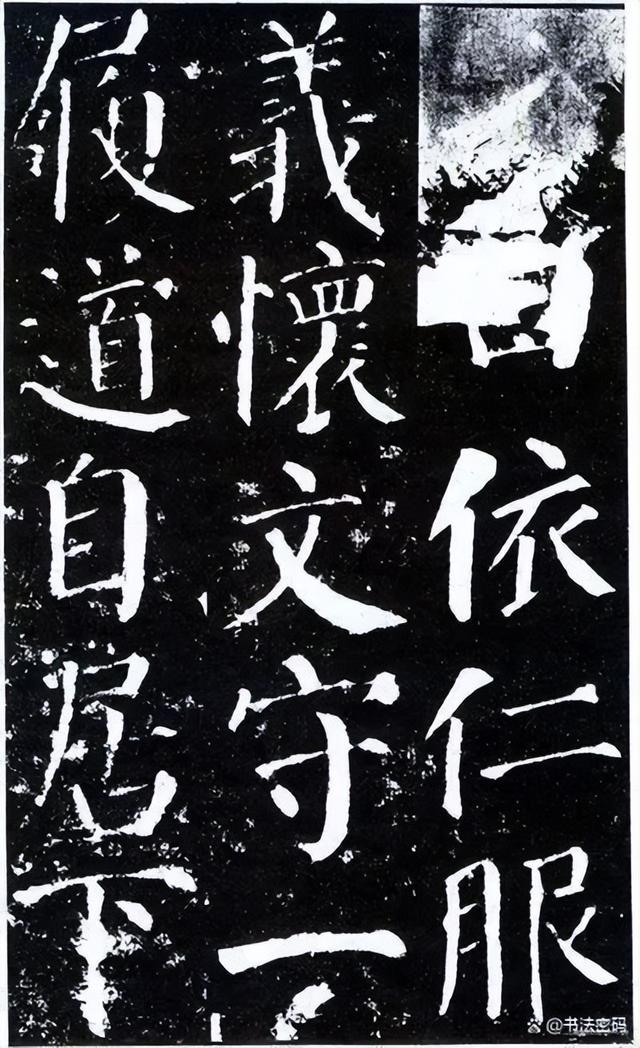 依仁服
義懷文守一
履道自居下
@书法密码